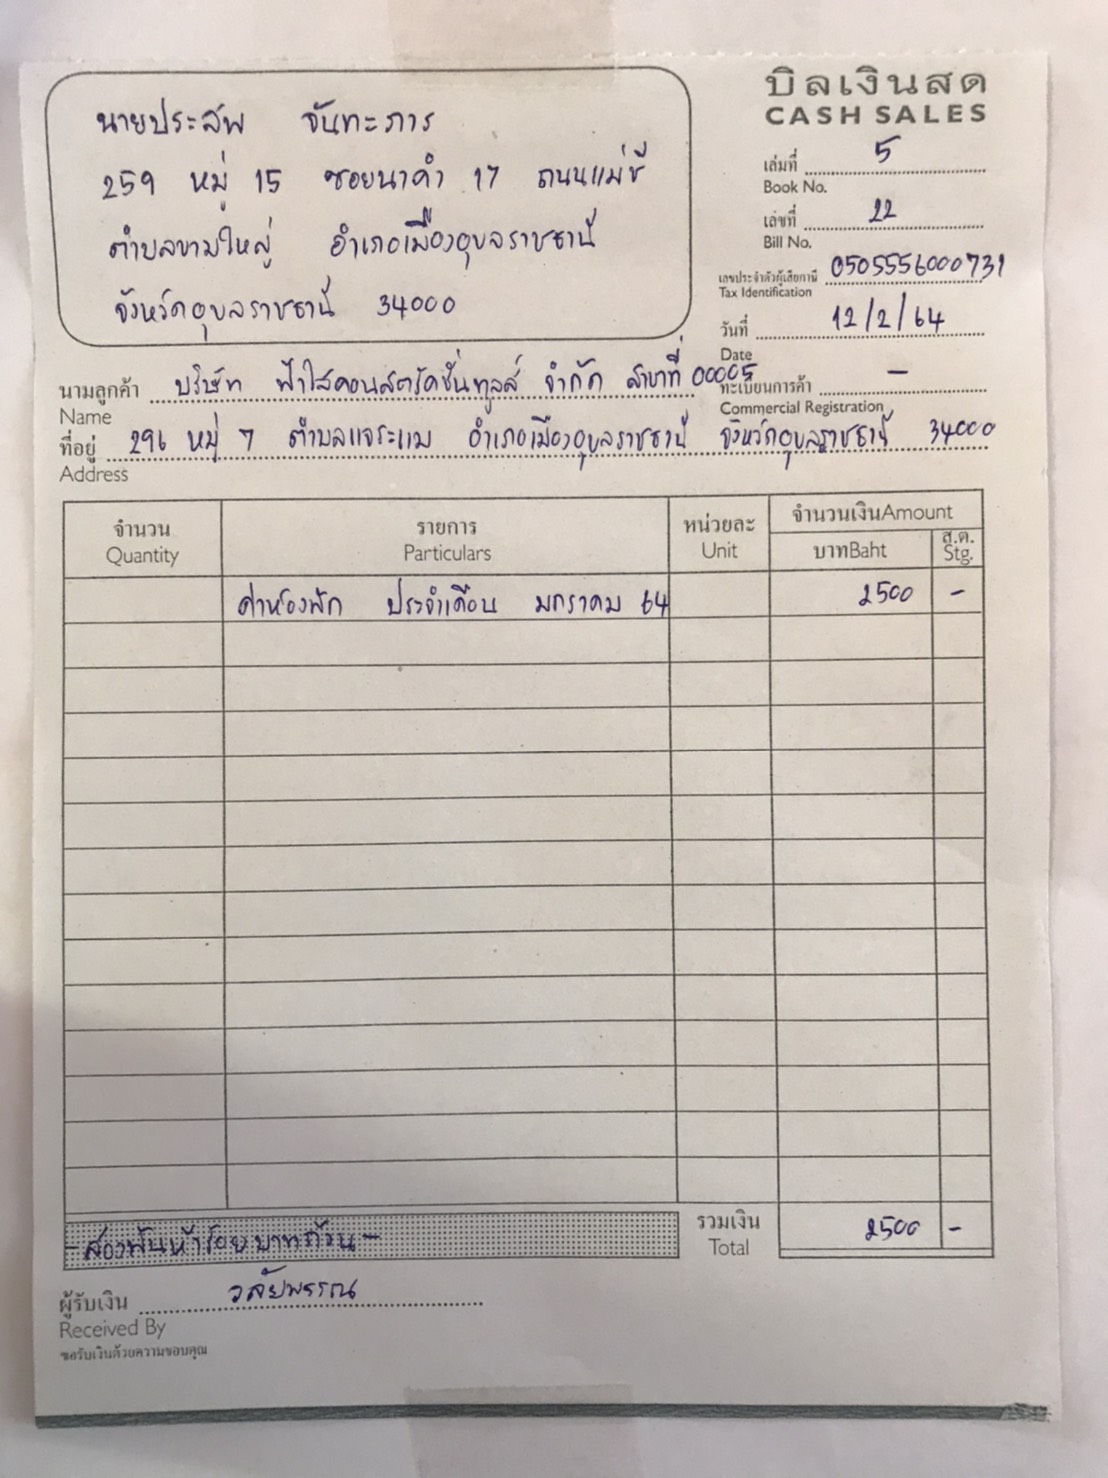 บิลเงินสด
CASH SALES
นายประสพ จันทะภาร
259 หมู่ 15 ซอยนาคำ 17 ถนนแม่ชี
ตำบลขามใหญ่ อำเภอเมืองอุบลราชธานี
จังหวัดอุบลราชธานี 34000
เล่มที่ 5
Book No.
เลขที่ 22
Bill No.
เลขประจำตัวผู้เสียภาษี 0505556000731
Tax Identification
วันที่ 12/2/64
Date
นามลูกค้า บริษัท ฟ้าใสคอนสตรัคชั่นทูลส์ จำกัด สาขาที่ 00005
Name
ทะเบียนการค้า -
Commercial Registration
ที่อยู่ 296 หมู่ 7 ตำบลแจระแม อำเภอเมืองอุบลราชธานี จังหวัดอุบลราชธานี 34000
Address
จำนวน รายการ หน่วยละ จำนวนเงินAmount
Quantity Particulars Unit บาทBaht ส.ต. Stg.
ค่าห้องพัก ประจำเดือน มกราคม 64 2500 -
-สองพันห้าร้อยบาทถ้วน- รวมเงิน 2500 -
Total
ผู้รับเงิน วลัยพรรณ
Received By
ขอรับเงินด้วยความขอบคุณ